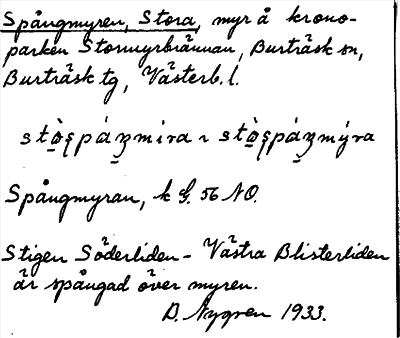 Spångmyren, Stora, myr å krono-
parken Stormyrbrännan, Burträsk sn,
Burträsk tg, Västerb. l.
Spångmyran, k G. 56 NO.
Stigen Söderliden - Västra Blisterliden
är spångad över myren.
D. Nygren 1933.